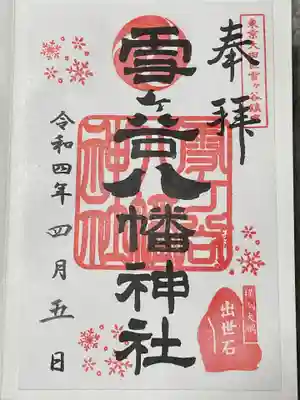 東京大田区雪ヶ谷鎮座
奉拝
雪ヶ谷八幡神社
雪ヶ谷
八幡
神社
出世石
令和四年四月五日